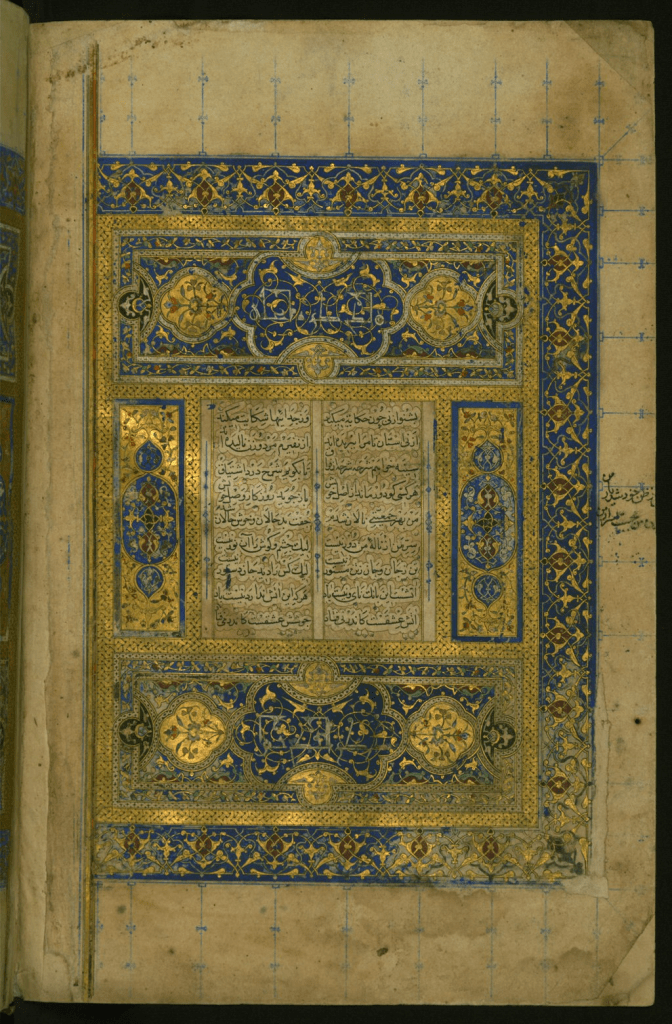 بشنو از نی چون حکایت میکند وز جداییها شکایت میکند
کز نیستان تا مرا ببریده‌اند از نفیرم مرد و زن نالیده‌اند
سینه خواهم شرحه شرحه از فراق تا بگویم شرح درد اشتیاق
هر کسی کو دور ماند از اصل خویش باز جوید روزگار وصل خویش
من بهر جمعیتی نالان شدم جفت بدحالان و خوش حالان شدم
سر من از ناله من دور نیست لیک چشم و گوش را آن نور نیست
تن ز جان و جان ز تن مستور نیست لیک کس را دید جان دستور نیست
آتشست این بانگ نای و نیست باد هر که این آتش ندارد نیست باد
آتش عشقست کاندر نی فتاد جوشش عشقست کاندر می فتاد
از ظن خود شد یار من